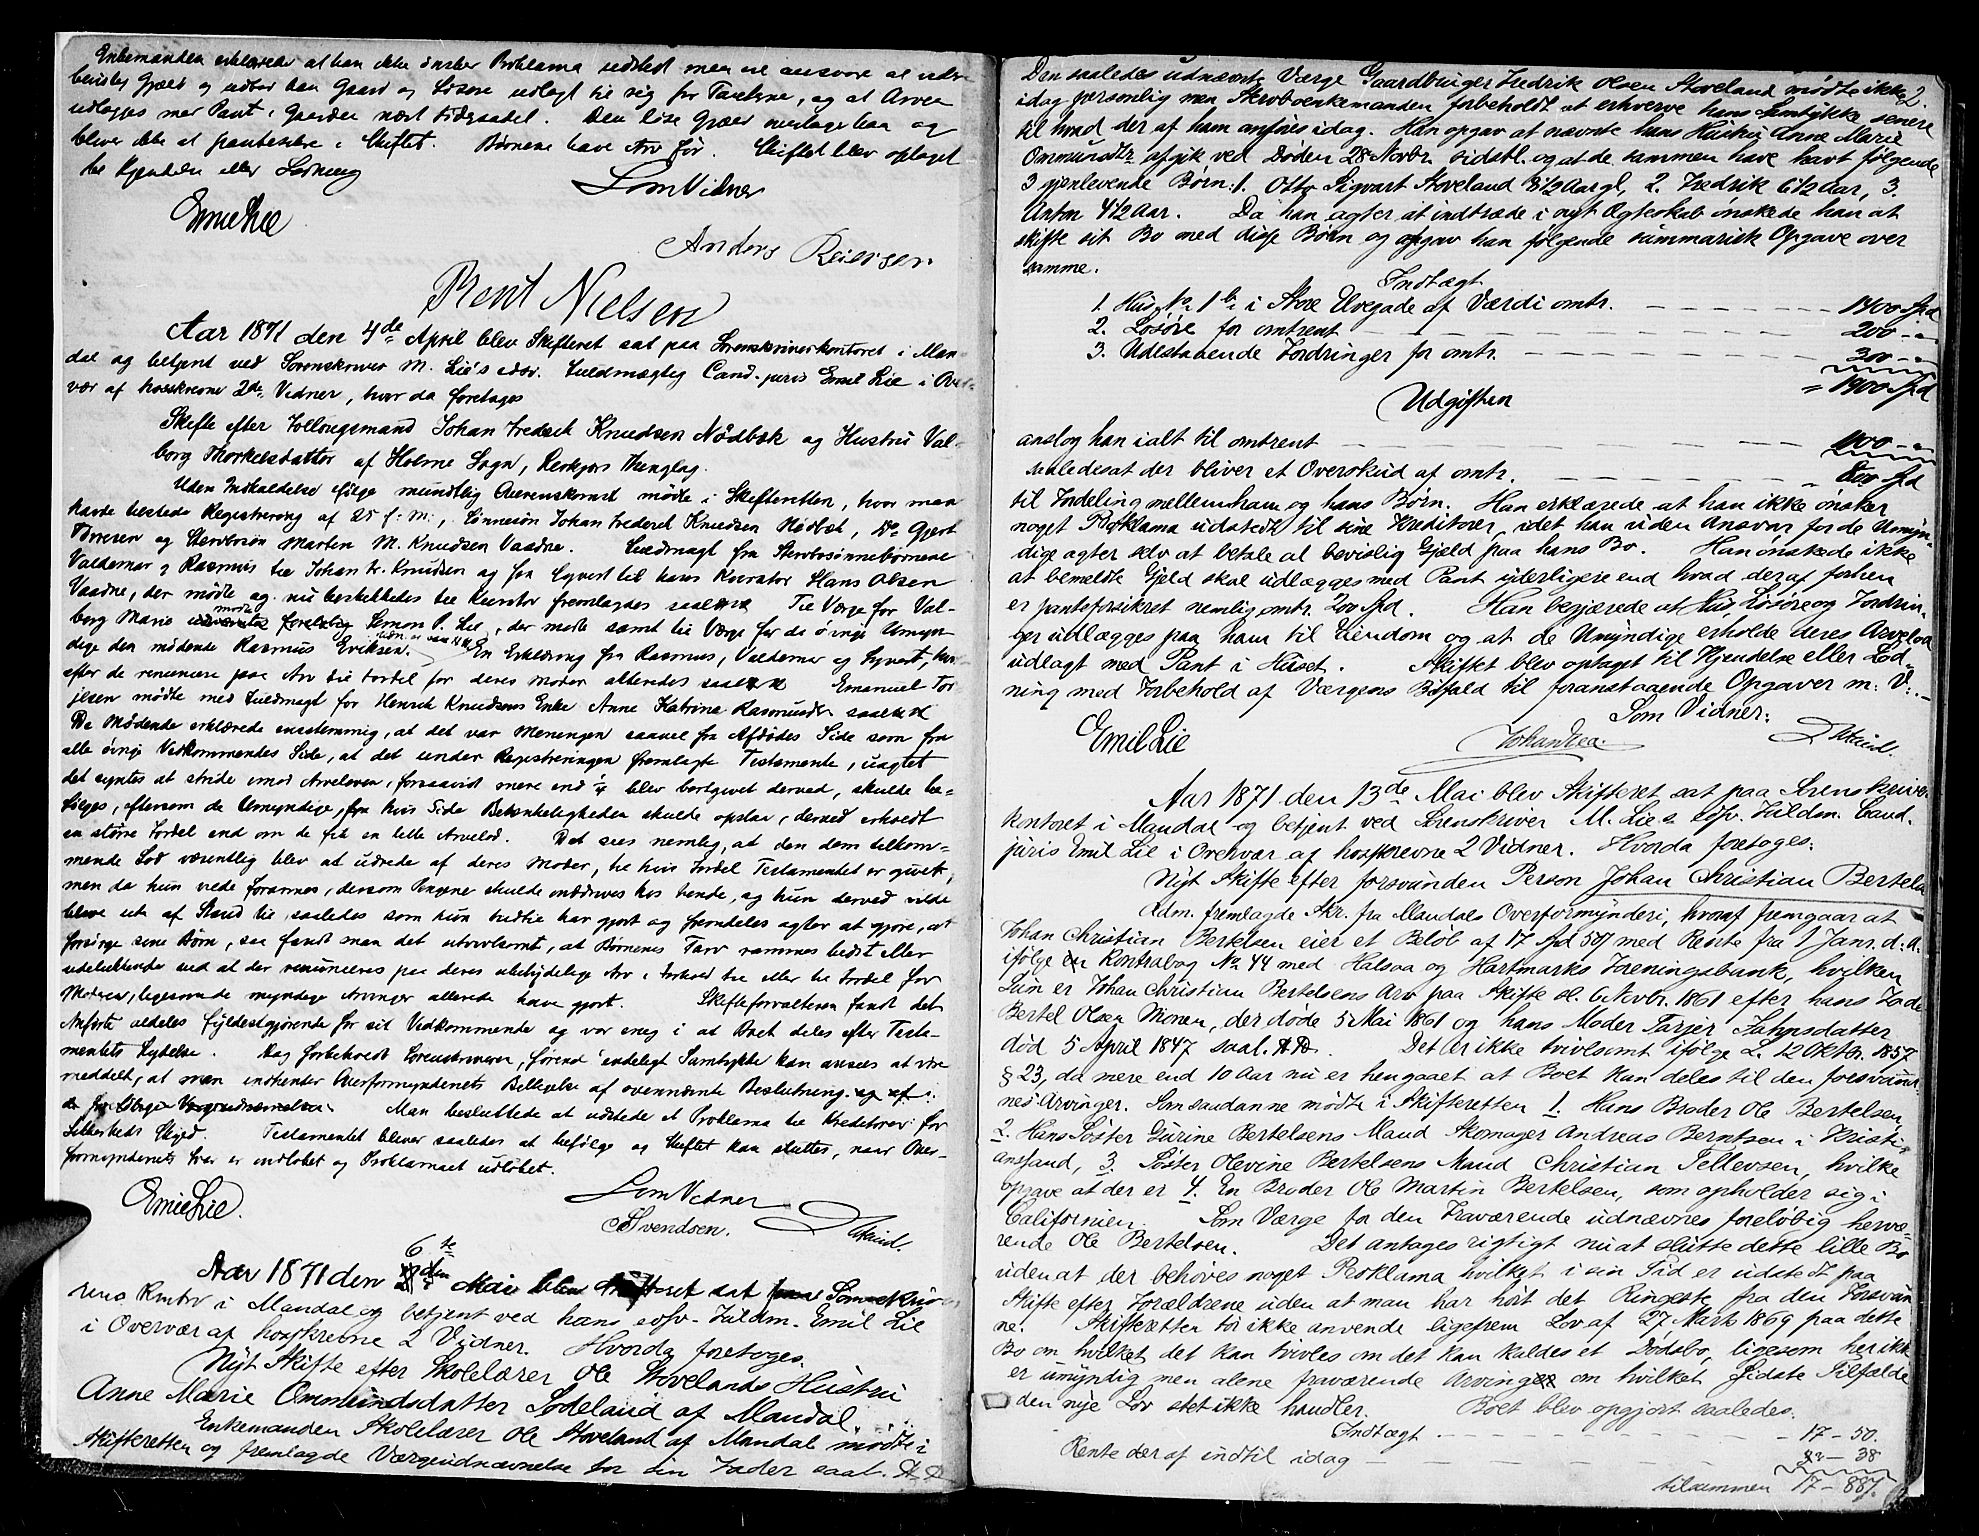 Enkemanden erklærede at han ikke ønsker Proklama udstedt men vil ansvare al
bevislig Gjæld og udbad han Gaard og Løsøre udlagt til sig for Taxterne, og at Arven
udlægges mod Pant i Gaarden næst Gjæld. Den løse Gjæld overtager han og
bliver ikke at pantsikre i Skiftet. Børnene have Arv før. Skiftet blev optaget
til Kjendelse eller Lodning
Som Vidner
Emil Lie
Anders Reiersen.
Bent Nielsen
Aar 1871 den 4de April blev Skifteret sat paa Sorenskriverkontoret i Man-
dal og betjent ved Sorenskriver M. Lie's edsv. Fuldmægtig Cand. juris Emil Lie i Over-
vær af hosskrevne 2de Vidner, hvor da foretoges
Skifte efter Follougsmand Johan Fredrik Knudsen Nødbæk og Hustru Val-
borg Thorkelsdatter af Holme Sogn, Bjerkjers Thinglag.
Uden Indkaldelse ifølge mundtlig Overenskomst mødte i Skifteretten, hvor man
havde testede Registrering af 25 f: M:, Sønnesøn Johan Fredrik Knudsen Nødbæk, Do Gjert
Torresen og Stervbosøn Martin M. Knudsen Vaadne. Fuldmagt fra Stervbosønnebørnene
Valdemar og Rasmus til Johan Fr. Knudsen og fra Syvert til hans Kurator Hans Olsen
Vaadne, der mødte og nu beskikkedes til Kurator fremlagdes saal. Til Værge for Val-
borg Marie mødte Simon P. Lie, der mødte samt til Værge for de øvrige Umyn-
dige den mødende Rasmus Eriksen. En Erklæring fra Rasmus, Valdemar og Syvert, hvor-
efter de renuncere paa Arv til Fordel for deres Moder atteredes saal. Emanuel Tor-
jesen mødte med Fuldmagt for Henrik Knudsens Enke Anne Katrine Rasmusdr saal.
De Mødende erklærede enstemmig, at det var Meningen saavel fra Afdødes Side som fra
alle øvrige Vedkommendes Side, at det under Registreringen fremlagte Testamente, uagtet
det syntes at stride imod Arveloven, forsaavidt mere end ¼ blev bortgivet derved, skulde be-
følges, eftersom de Umyndige, fra hvis Side Betænkeligheden skulde opstaa, derved erholdt
en større Fordel end om de fik en lille Arvelod. Det sees nemlig, at den dem tilkom-
mende Lod væsentlig blev at udrede af deres Moder, til hvis Fordel Testamentet er givet,
men da hun vilde forarmes, dersom Pengene skulde inddrives hos hende, og hun derved vilde
blive ude af Stand til, saaledes som hun hidtil har gjort og fremdeles agter at gjøre, at
forsørge sine Børn, saa fandt man det utvivlsomt, at Børnenes Tarv rammes bedst eller
udelukkende ved at der renunceres paa deres ubetydelige Arv i Forhold til eller til Fordel for
Moderen, ligesom de myndige Arvinger allerede have gjort. Skifteforvalteren fandt det
Anførte aldeles fyldestgjørende for sit Vedkommende og var enig i at Boet deles efter Testa-
mentets Lydelse. Dog forbeholdt Sorenskriveren, førend endeligt Samtykke kan ansees at være
meddelt, at man indhenter Overformynderiets Billigelse af ovennævnte Beslutning.
Man besluttede at udstede et Proklama til Kreditorer for
Sikkerheds Skyld. Testamentet bliver saaledes at befølge og Skiftet kan sluttes, naar Over-
formynderiets Svar er indløbet og Proklamaet udløbet.
Som Vidner
Emil Lie.
Svendsen.
Aar 1871 den 6te Mai blev Skifteret sat Sorenskrive-
rens Kontor i Mandal og betjent ved hans edsv. Fuldm. Emil Lie
i Overvær af hosskrevne 2 Vidner. Hvorda foretoges.
Nyt Skifte efter Skolelærer Ole Stovelands Hustru
Anne Marie Ommundsdatter Sødeland af Mandal.
Enkemanden Skolelærer Ole Stoveland af Mandal mødte i
Skifteretten og fremlagde Værgeudnævnelse for sin Fader saal.
2.
Den saaledes udnævnte Værge Gaardbruger Fredrik Olsen Stoveland mødte ikke
idag personlig men Stervboenkemanden forbeholdt at erhverve hans Samtykke senere
til hvad der af ham anføres idag. Han opgav at nævnte hans Hustru Anne Marie
Ommundsdtr afgik ved Døden 28 Novbr. sidstl. og at de sammen have havt følgende
3 gjenlevende Børn: 1. Otto Sigvart Stoveland 8 1/2 Aar gl, 2. Fredrik 6 1/2 Aar, 3.
Anton 4 1/2 Aar. Da han agter at indtræde i nyt Ægteskab ønskede han at
skifte sit Bo med disse Børn og opgav han følgende summarisk Opgave over
samme.
Indtægt
1. Hus No 1 b i Store Elvegade af Værdi omtr. 1400 Spd
2. Løsøre for omtrent 200 - "
3. Udestaaende Fordringer for omtr. 300 - "
= 1900 Spd
Udgiften
anslog han ialt til omtrent 1100 - "
saaledes at der bliver et Overskud af omtr. 800 Spd
til Fordeling mellem ham og hans Børn. Han erklærede, at han ikke ønsker
noget Proklama udstedt til sine Kreditorer, idet han uden Ansvar for de Umyn-
dige agter selv at betale al bevislig Gjæld paa hans Bo. Han ønskede ikke
at bemeldte Gjeld skal udlægges med Pant yderligere end hvad deraf forhen
er panteforsikret nemlig omtr. 200 Spd. Han begjærede at Hus, Løsøre og Fordrin-
ger udlægges paa ham til Eiendom og at de Umyndige erholde deres Arvelod
udlagt med Pant i Huset. Skiftet blev optaget til Kjendelse eller Lod-
ning med Forbehold af Værgens Bifald til foranstaaende Opgaver m: V:
Som Vidner:
Emil Lie
Aar 1871 den 13de Mai blev Skifteret sat paa Sorenskriver-
kontoret i Mandal og betjent ved Sorenskriver M. Lies edsv. Fuldm. Cand.
juris Emil Lie i Overvær af hosskrevne 2 Vidner. Hvorda foretoges:
Nyt Skifte efter forsvunden Person Johan Christian Bertelsen
Adm. fremlagde Skr. fra Mandals Overformynderi, hvoraf fremgaar at
Johan Christian Bertelsen eier et Beløb af 17 Spd 50 ß med Rente fra 1 Janr. d. A.
ifølge Kontrabog No 44 med Halsaa og Hartmarks Foreningsbank, hvilken
Sum er Johan Christian Bertelsens Arv paa Skifte sl. 6 Novbr. 1861 efter hans Fader
Bertel Olsen Monen, der døde 5 Mai 1861 og hans Moder Tarjer Jahnsdatter
død 5 April 1847 saal. Det er ikke tvivlsomt ifølge L. 12 Oktbr. 1857
§ 23, da mere end 10 Aar nu er hengaaet at Boet kan deles til den forsvund-
nes Arvinger. Som saadanne mødte i Skifteretten 1. Hans Broder Ole Bertelsen,
2. Hans Søster Gurine Bertelsens Mand Skomager Andreas Berntsen i Kristi-
ansand, 3. Søster Olevine Bertelsens Mand Christian Tellevsen, hvilke
opgave at der er 4. En Broder Ole Martin Bertelsen, som opholder sig i
Californien. Som Værge for den Fraværende udnævnes foreløbig hervæ-
rende Ole Bertelsen. Det antages rigtigt nu at slutte dette lille Bo
uden at der behøves noget Proklama hvilket i sin Tid er udstedt paa
Skifte efter Forældrene uden at man har hørt det Ringeste fra den Forsvun-
ne. Skifteretten tør ikke anvende ligefrem Lov af 27 Marts 1869 paa dette
Bo om hvilket det kan tvivles om det kan kaldes et Dødsbo, ligesom her ikke
er umyndig men alene fraværende Arvinger om hvilket sidste Tilfælde
den nye Lov slet ikke handler. Boet blev opgjort saaledes.
Indtægt 17 - 50.
Rente deraf indtil idag " - 38
tilsammen 17 - 88 ß.